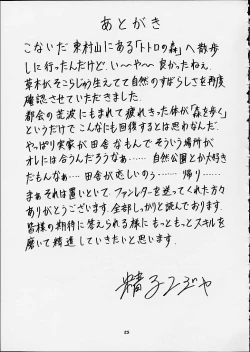 あとがき
こないだ東村山にある「トトロの森」へ散歩
しに行ったんだけど、い〜や〜良かったねぇ
草木がそこらじゅう生えてて自然のすばらしさを再度
確認させていただきました。
都会の荒波にもまれて疲れきった体が「森を歩く」
というだけでこんなにも回復するとは思わなんだ。
やっぱり実家が田舎なもんでそういう場所が
オレには合うんだろうなぁ……自然公園とか大好き
だもんなぁ…。田舎が恋しいのぅ……帰り……
まぁそれは置いといて、ファンレターを送ってくれた方々
ありがとうございます。全部しっかりと読んでおります。
皆様の期待に答えられる様にもっともっとスキルを
磨いて精進していきたいと思います。
精子エンジャ
25